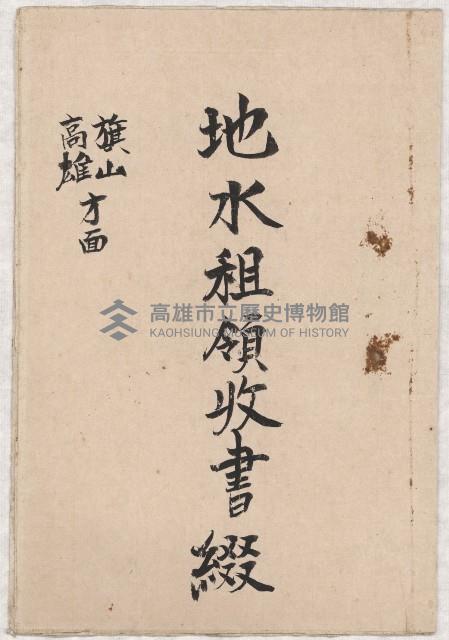 地水租領收書綴
旗山
高雄
方面
高雄市立歷史博物館
KAOHSIUNG MUSEUM OF HISTORY